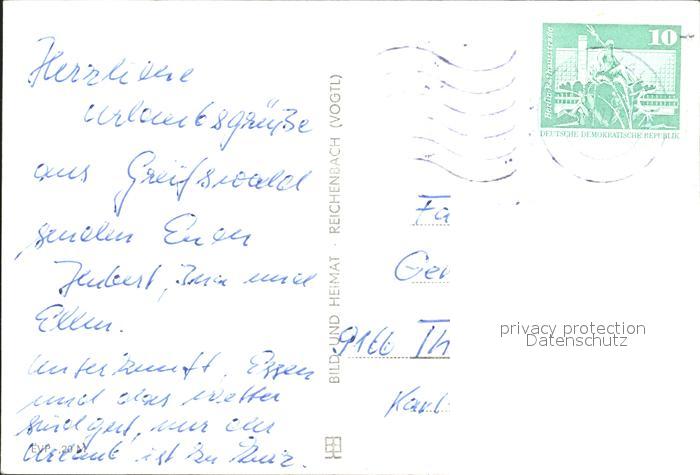 Herzliche
Urlaubsgrüße
aus Greifswald
senden Euch
Hubert, Ina und
Ellen.
Unterkunft, Essen
und das Wetter
sind gut, nur der
Urlaub ist zu kurz.
EVP
BILD UND HEIMAT · REICHENBACH (VOGTL)
10
DEUTSCHE DEMOKRATISCHE REPUBLIK
Fa
Ger
9166 Th
Karl-
privacy protection
Datenschutz